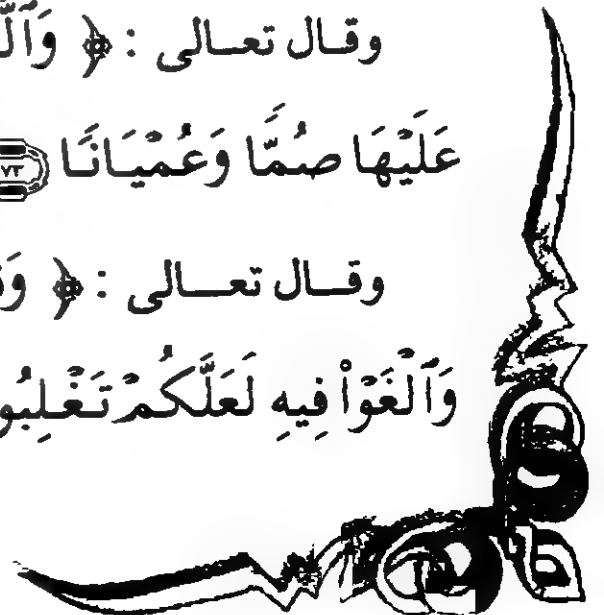 وقال تعالى : ﴿
عَلَيْهَا صُمًّا وَعُمْيَانًا ٧٣
وقال تعالى : ﴿
وَٱلْغَوْا۟ فِيهِ لَعَلَّكُمْ